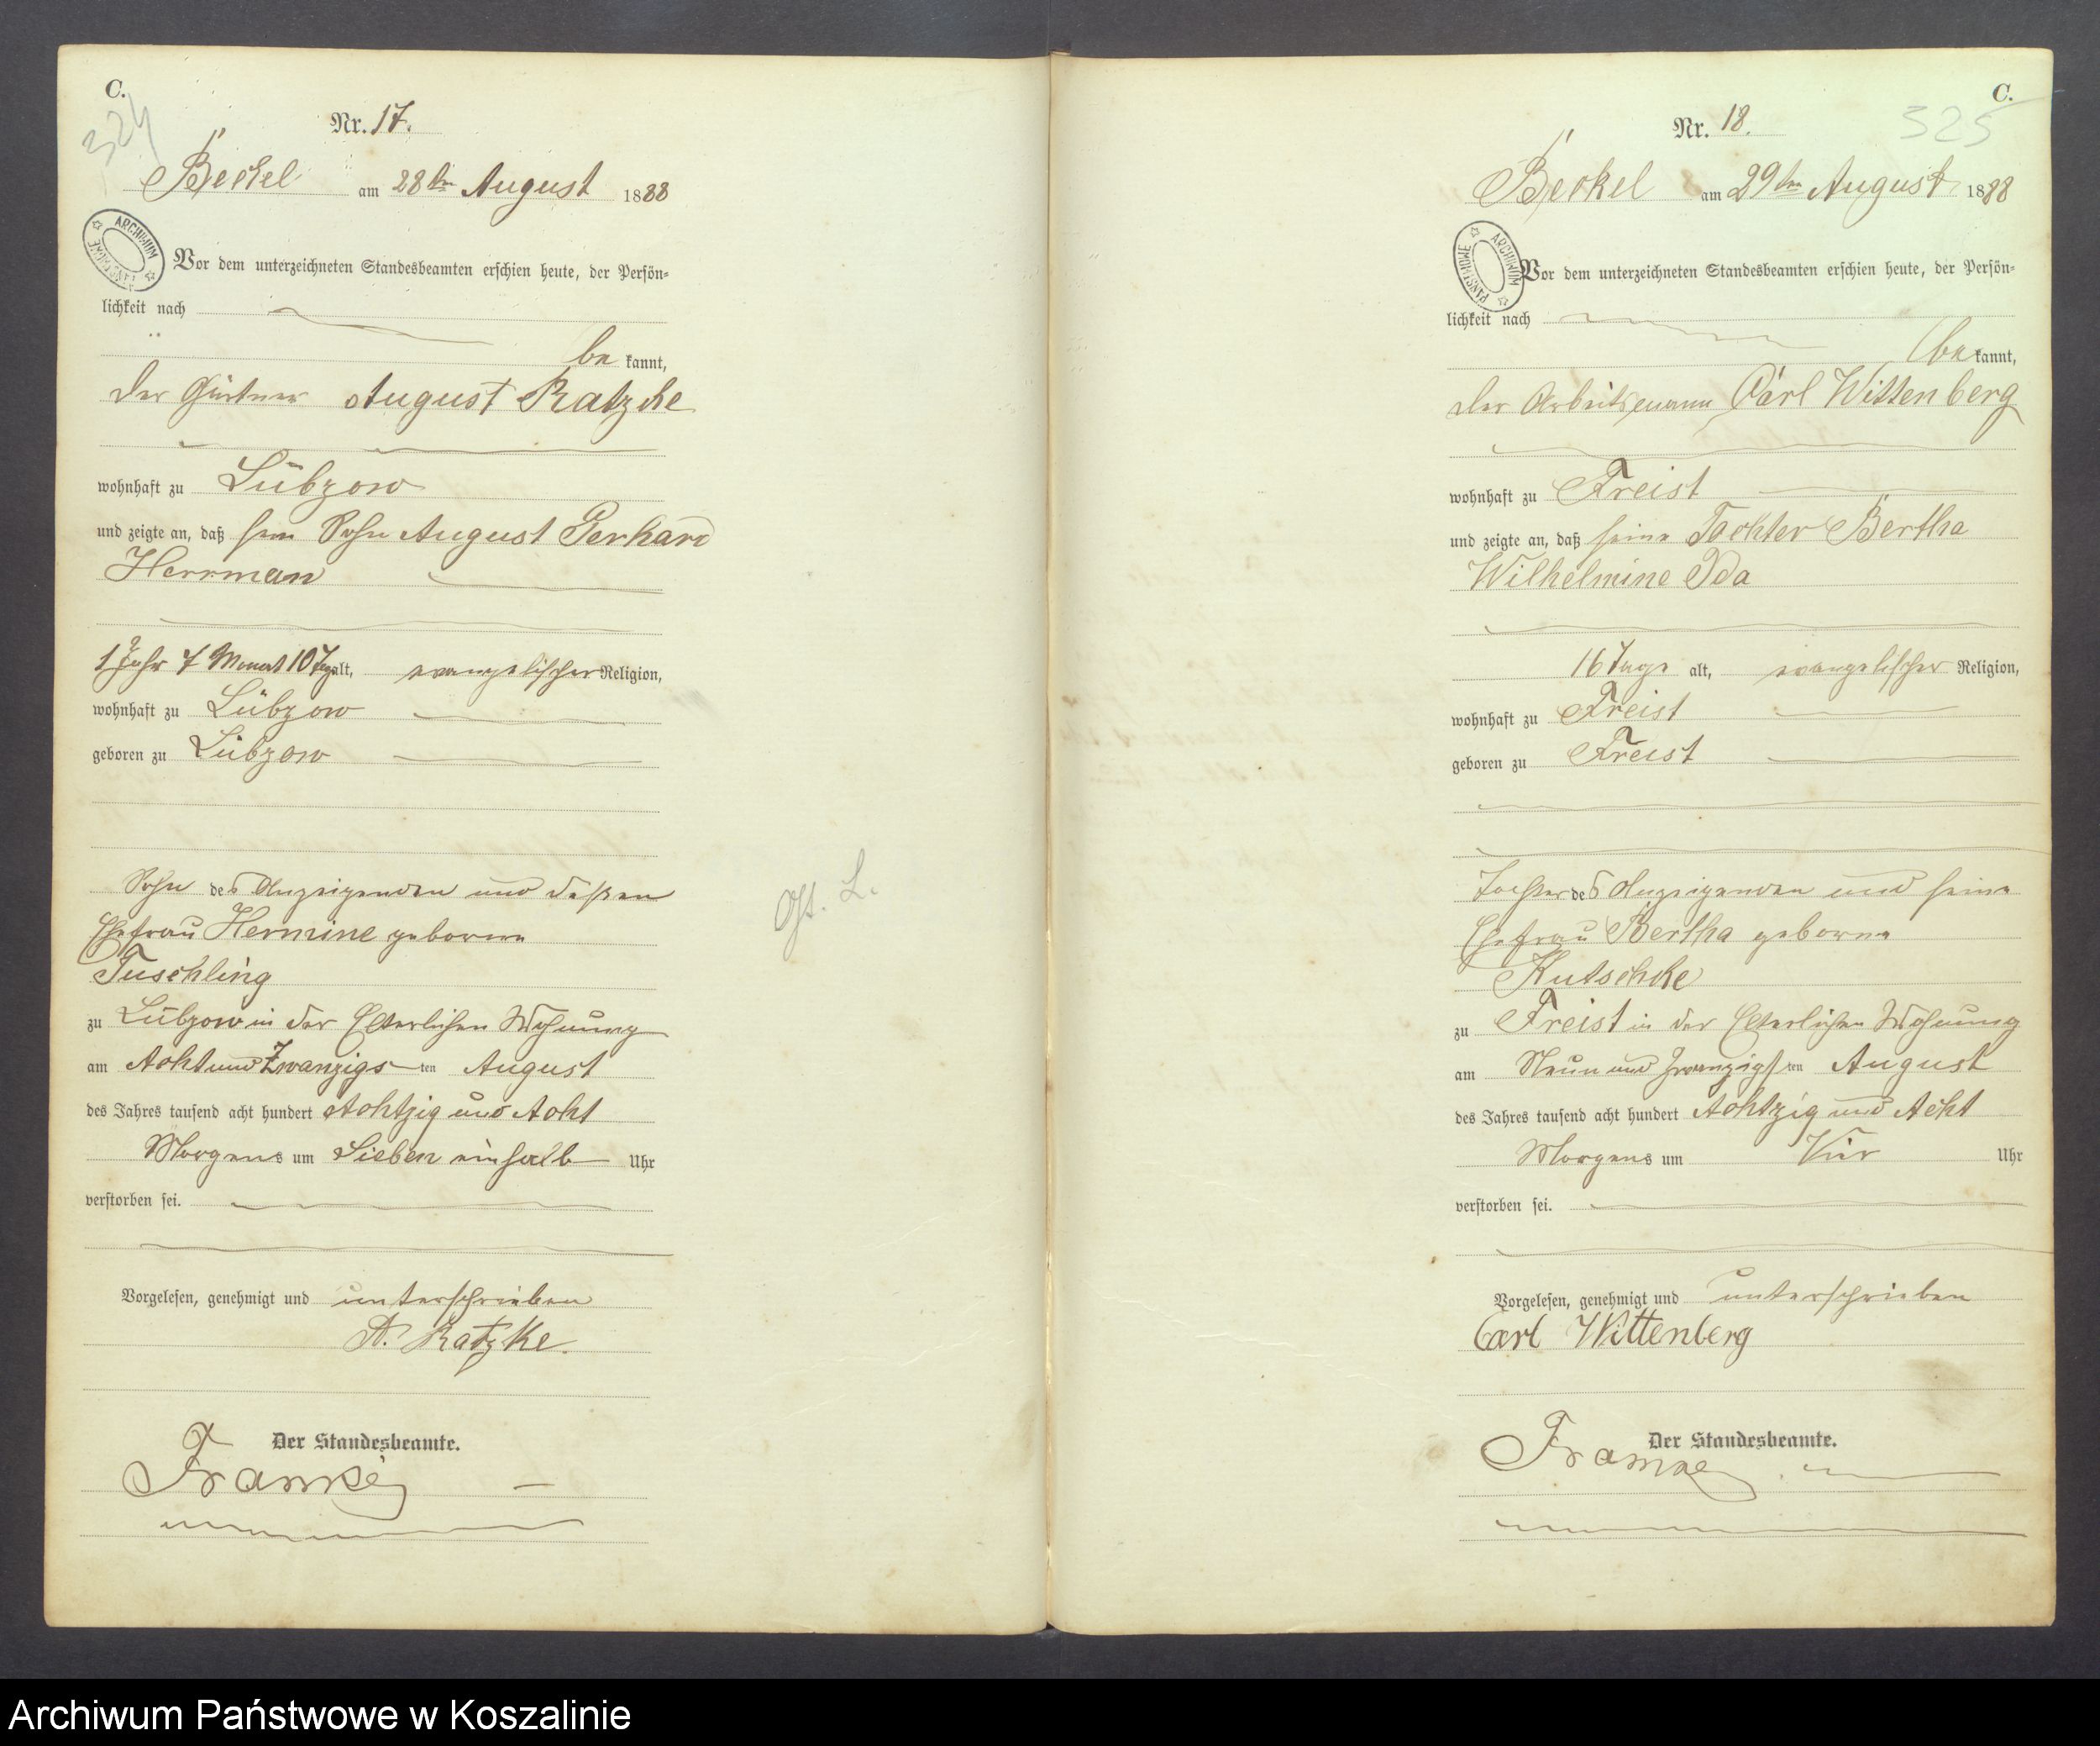 C.
324
Nr. 17.
Beckel am 28ten August 1888
ARCHIWUM PAŃSTWOWE
Vor dem unterzeichneten Standesbeamten erschien heute, der Persön=
lichkeit nach
be kannt,
der Gärtner August Ratzcke
wohnhaft zu Lübzow
und zeigte an, daß sein Sohn August Gerhard
Herrman
1 Jahr 7 Monat 10 Tag alt, evangelischer Religion,
wohnhaft zu Lübzow
geboren zu Lübzow
Sohn des Anzeigenden und deßen
Ehefrau Hermine geborne
Tuschling
zu Lübzow in der Elterlichen Wohnung
am Acht und Zwanzigs ten August
des Jahres tausend acht hundert Achtzig und Acht
Morgens um Sieben einhalb Uhr
verstorben sei.
Vorgelesen, genehmigt und unterschrieben
A. Ratzke.
Der Standesbeamte.
Franke
C.
325
Nr. 18.
Beckel am 29ten August 1888
ARCHIWUM PAŃSTWOWE
Vor dem unterzeichneten Standesbeamten erschien heute, der Persön=
lichkeit nach
be kannt,
der Arbeitsmann Carl Wittenberg
wohnhaft zu Freist
und zeigte an, daß seine Tochter Bertha
Wilhelmine Ida
16 Tage alt, evangelischer Religion,
wohnhaft zu Freist
geboren zu Freist
Tochter des Anzeigenden und seine
Ehefrau Bertha geborne
Kutschke
zu Freist in der Elterlichen Wohnung
am Neun und Zwanzigsten August
des Jahres tausend acht hundert Achtzig und Acht
Morgens um Vier Uhr
verstorben sei.
Vorgelesen, genehmigt und unterschrieben
Carl Wittenberg
Der Standesbeamte.
Franke
Archiwum Państwowe w Koszalinie